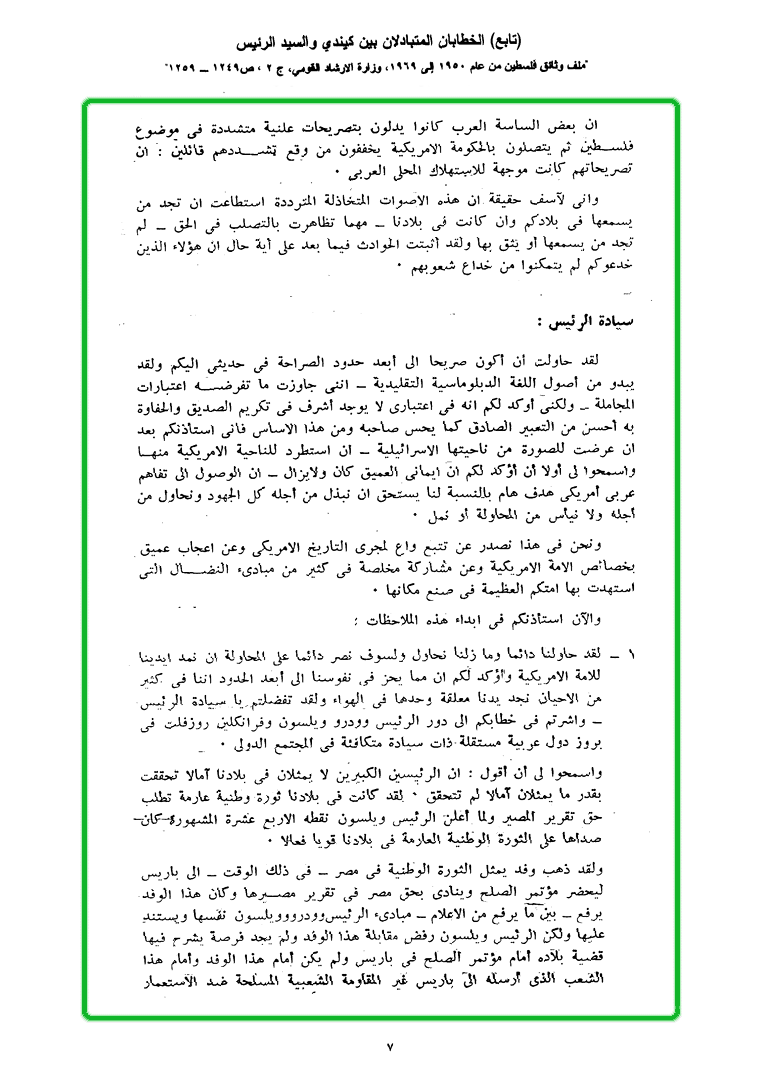 (تابع) الخطابان المتبادلان بين كيندي والسيد الرئيس
"ملف وثائق فلسطين من عام ١٩٥٠ إلى ١٩٦٩، وزارة الارشاد القومي، ج ٢ ، ص١٢٤٩ ــ ١٢٥٩"
ان بعض الساسة العرب كانوا يدلون بتصريحات علنية متشددة فى موضوع
فلسطين ثم يتصلون بالحكومة الامريكية يخففون من وقع تشددهم قائلين : ان
تصريحاتهم كانت موجهة للاستهلاك المحلى العربى ٠
وانى لآسف حقيقة ان هذه الاصوات المتخاذلة المترددة استطاعت ان تجد من
يسمعها فى بلادكم وان كانت فى بلادنا ــ مهما تظاهرت بالتصلب فى الحق ــ لم
تجد من يسمعها أو يثق بها ولقد أثبتت الحوادث فيما بعد على أية حال ان هؤلاء الذين
خدعوكم لم يتمكنوا من خداع شعوبهم ٠
سيادة الرئيس :
لقد حاولت أن أكون صريحا الى أبعد حدود الصراحة فى حديثى اليكم ولقد
يبدو من أصول اللغة الدبلوماسية التقليدية ــ اننى جاوزت ما تفرضه اعتبارات
المجاملة ــ ولكنى أوكد لكم انه فى اعتبارى لا يوجد أشرف فى تكريم الصديق والحفاوة
به أحسن من التعبير الصادق كما يحس صاحبه ومن هذا الاساس فانى استأذنكم بعد
ان عرضت للصورة من ناحيتها الاسرائيلية ــ ان استطرد للناحية الامريكية منها
واسمحوا لى أولا أن أؤكد لكم ان ايمانى العميق كان ولايزال ــ ان الوصول الى تفاهم
عربى أمريكى هدف هام بالنسبة لنا يستحق ان نبذل من أجله كل الجهود ونحاول من
أجله ولا نيأس من المحاولة أو نمل ٠
ونحن فى هذا نصدر عن تتبع واع لمجرى التاريخ الامريكى وعن اعجاب عميق
بخصائص الامة الامريكية وعن مشاركة مخلصة فى كثير من مبادىء النضال التى
استهدت بها امتكم العظيمة فى صنع مكانها ٠
والآن استأذنكم فى ابداء هذه الملاحظات :
١ ــ لقد حاولنا دائما وما زلنا نحاول ولسوف نصر دائما على المحاولة ان نمد ايدينا
للامة الامريكية وأؤكد لكم ان مما يحز فى نفوسنا الى أبعد الحدود اننا فى كثير
من الاحيان نجد يدنا معلقة وحدها فى الهواء ولقد تفضلتم يا سيادة الرئيس
ــ واشرتم فى خطابكم الى دور الرئيس وودرو ويلسون وفرانكلين روزفلت فى
بروز دول عربية مستقلة ذات سيادة متكافئة فى المجتمع الدولى ٠
واسمحوا لى أن أقول : ان الرئيسين الكبيرين لا يمثلان فى بلادنا آمالا تحققت
بقدر ما يمثلان آمالا لم تتحقق ٠ لقد كانت فى بلادنا ثورة وطنية عارمة تطلب
حق تقرير المصير ولما أعلن الرئيس ويلسون نقطه الاربع عشرة المشهورة كان
صداها على الثورة الوطنية العارمة فى بلادنا قويا فعالا ٠
ولقد ذهب وفد يمثل الثورة الوطنية فى مصر ــ فى ذلك الوقت ــ الى باريس
ليحضر مؤتمر الصلح وينادى بحق مصر فى تقرير مصيرها وكان هذا الوفد
يرفع ــ بين ما يرفع من الاعلام ــ مبادىء الرئيس وودرو ويلسون نفسها ويستند
عليها ولكن الرئيس ويلسون رفض مقابلة هذا الوفد ولم يجد فرصة يشرح فيها
قضية بلاده أمام مؤتمر الصلح فى باريس ولم يكن أمام هذا الوفد وأمام هذا
الشعب الذى أرسله الى باريس غير المقاومة الشعبية المسلحة ضد الاستعمار
٧